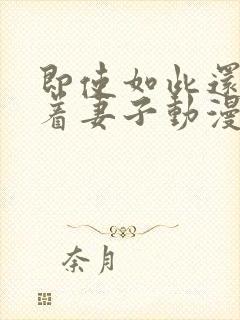 即使如此還
着妻子動漫
奈月